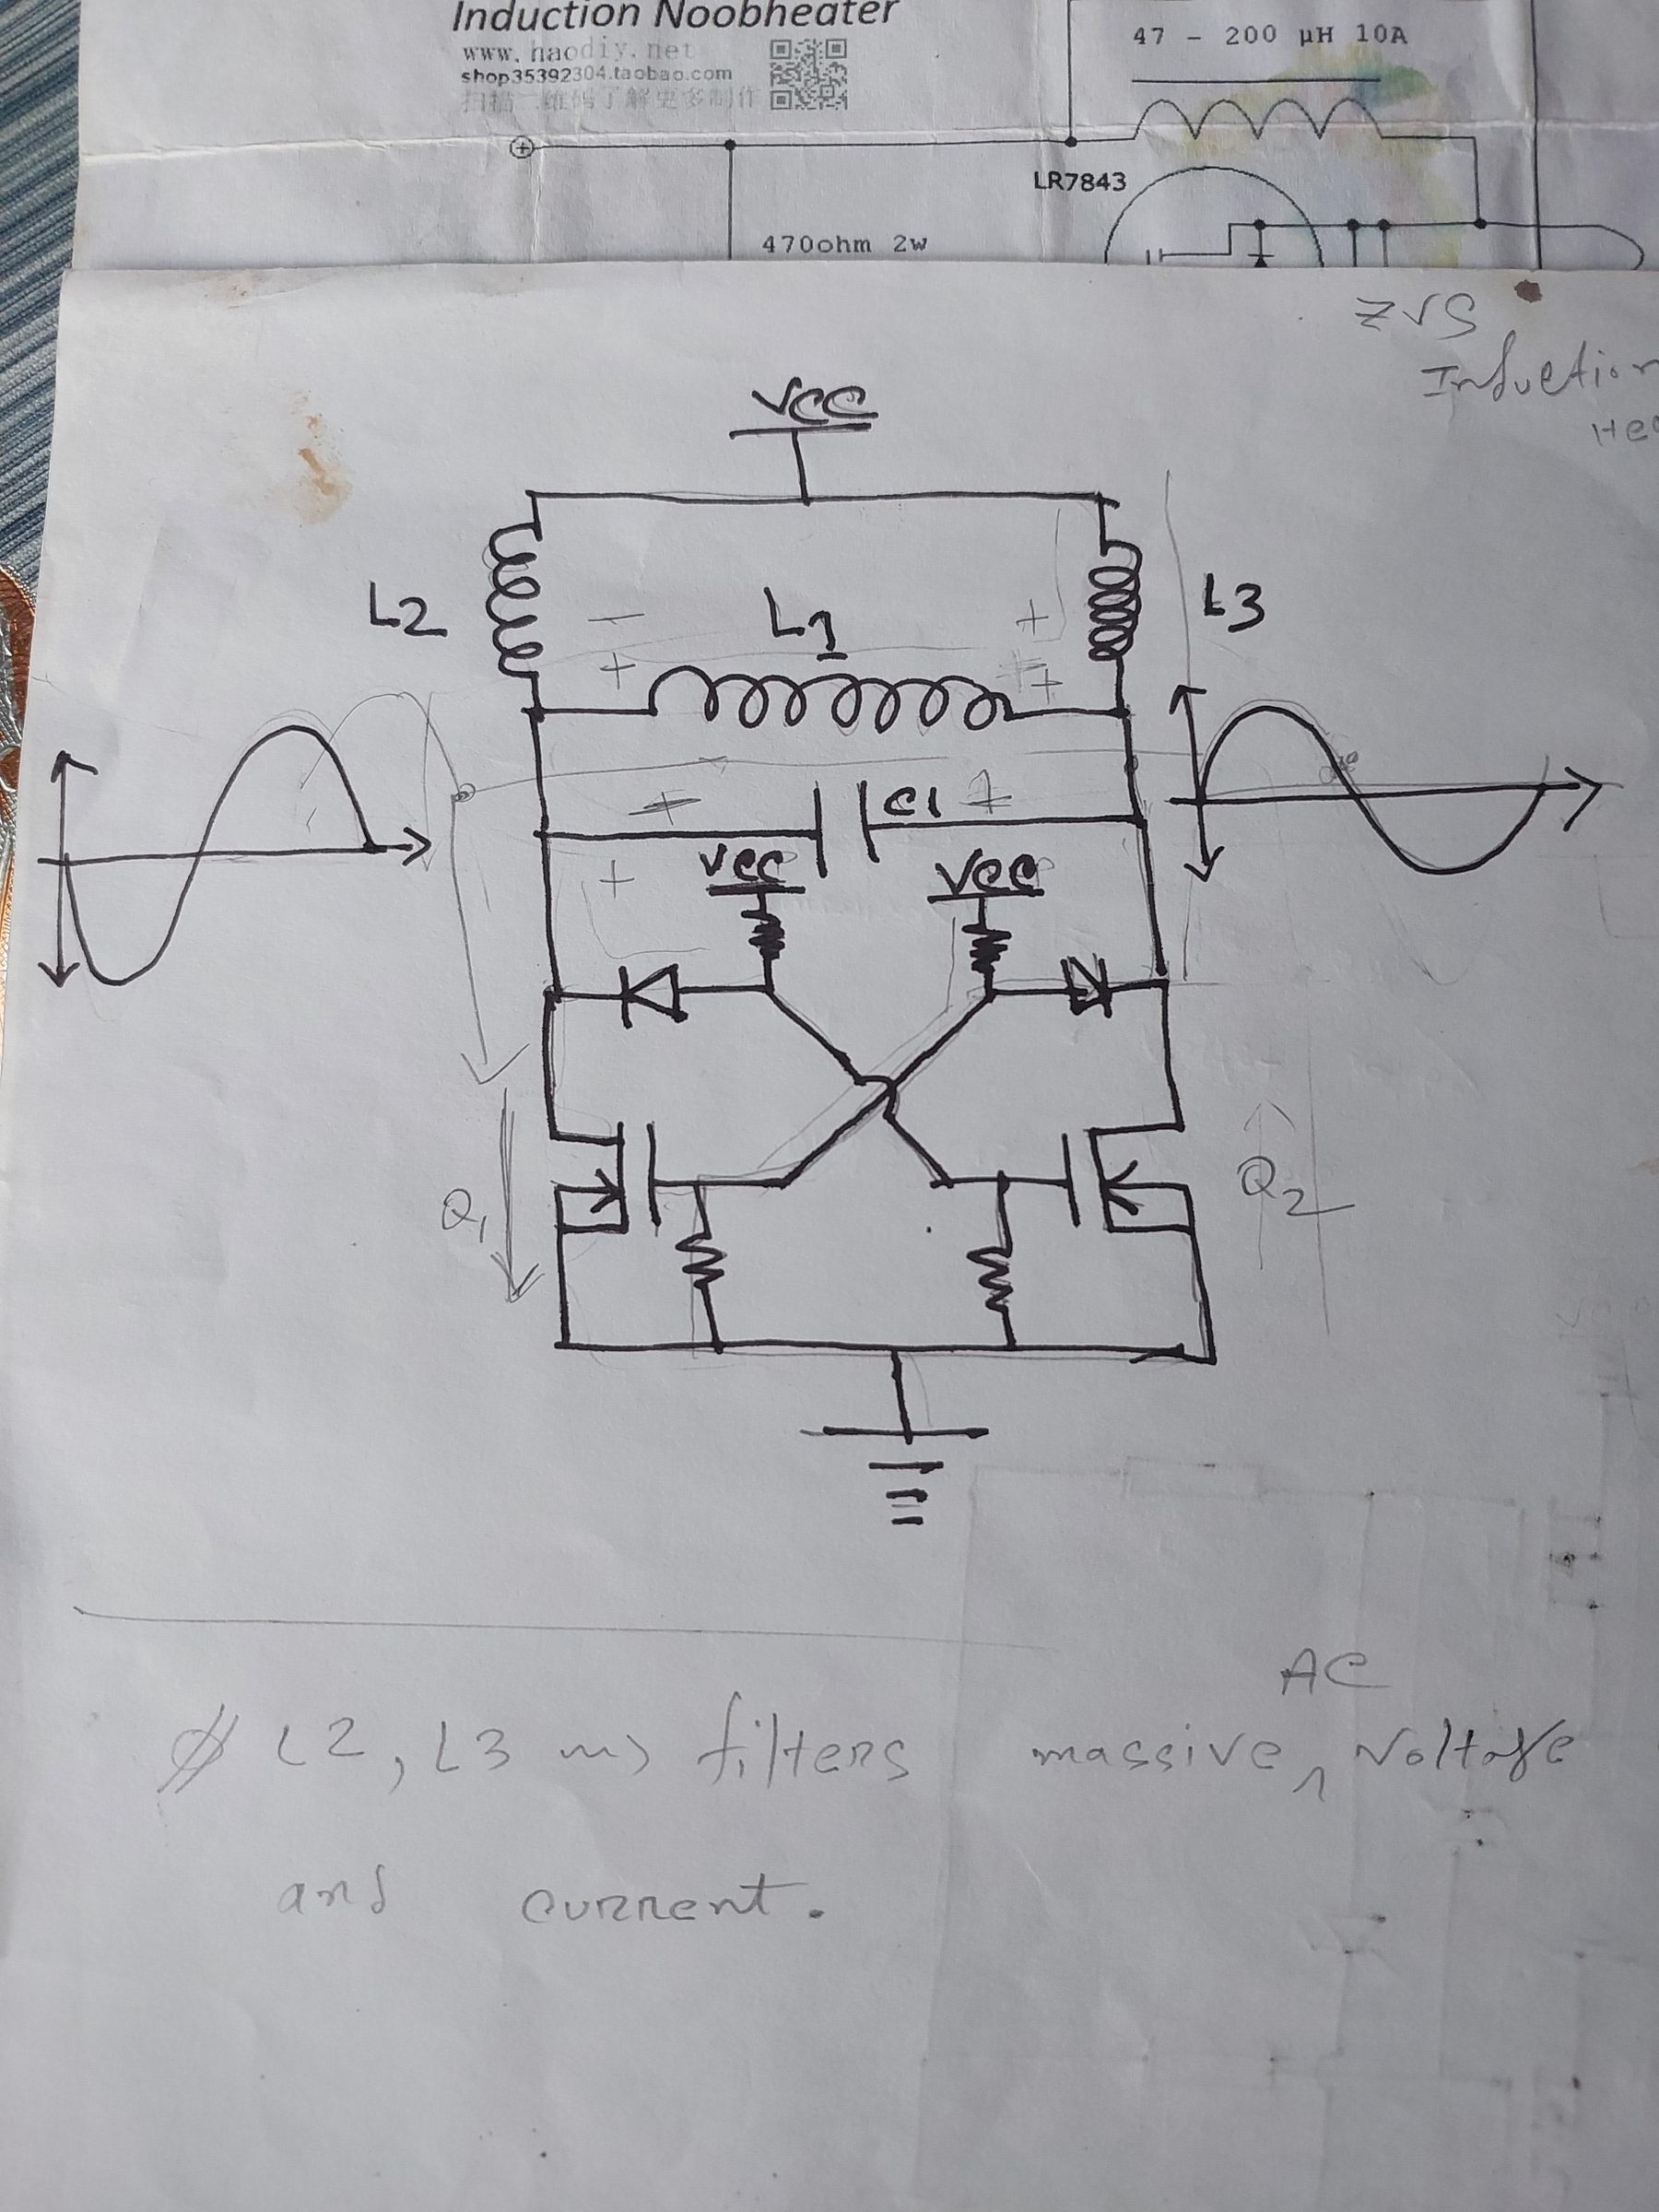 Induction Noobheater
www.haodiy.net
shop35392304.taobao.com
扫描二维码了解更多制作
47 - 200 µH 10A
LR7843
470ohm 2w
ZVS
Induction
Hea
VCC
L2
L1
L3
- +
+ +
C1
+ +
+
VCC
VCC
Q1
Q2
AC
L2, L3 filters massive ∧ voltage
and current.